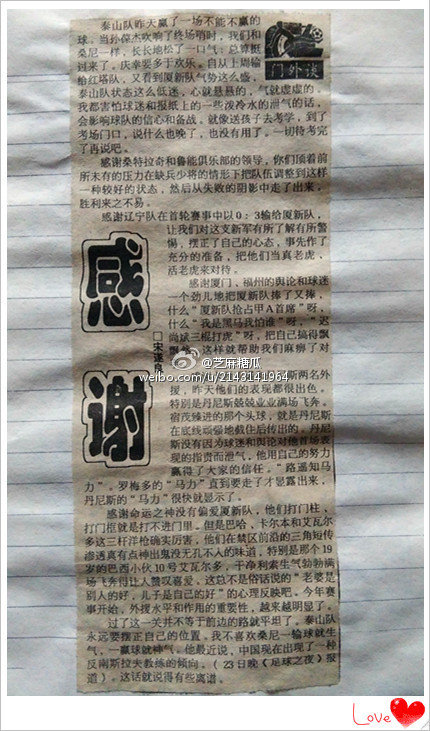 泰山队昨天赢了一场不能不赢的
球。当孙葆杰吹响了终场哨时，我们和
桑尼一样，长长地松了一口气，总算挺
过来了。庆幸要多于欢乐。自从上周输
给红塔队，又看到厦新队气势这么盛，
泰山队状态这么低迷，心就悬悬的，气就虚虚的。
我都害怕球迷和报纸上的一些泼冷水的泄气的话，
会影响球队的信心和备战。就像送孩子去考学，到了
考场门口，说什么也晚了，也没有用了。一切待考完
了再说吧。
门外谈
感谢桑特拉奇和鲁能俱乐部的领导，你们顶着前
所未有的压力在缺兵少将的情形下把队伍调整到这样
一种较好的状态，然后从失败的阴影中走了出来，
胜利来之不易。
感谢辽宁队在首轮赛事中以0：3输给厦新队，
让我们对这支新军有所了解有所警
惕，摆正了自己的心态，事先作了
充分的准备，把他们当真老虎、
活老虎来对待。
感谢厦门、福州的舆论和球迷
一个劲儿地把厦新队捧了又捧，
什么“厦新队抢占甲A首席”呀，
什么“我是黑马我怕谁”呀，“迟
尚斌三棍打虎”呀，把自己搞得飘
这样就帮助我们麻痹了对
感谢
□宋遂良
@芝麻糖瓜
weibo.com/u/2143141964
两名外
援，昨天他们的表现都很出色。
特别是丹尼斯兢兢业业满场飞奔。
宿茂臻进的那个头球，就是丹尼斯
在底线顽强地截住后传出的。丹尼
斯没有因为球迷和舆论对他首场表
现的指责而泄气，他用自己的努力
赢得了大家的信任。“路遥知马
力”。罗梅多的“马力”直到要走了才显露出来，
丹尼斯的“马力”很快就显示了。
感谢命运之神没有偏爱厦新队，他们打门柱、
打门框就是打不进门里。但是巴哈、卡尔本和艾瓦尔
多这三杆洋枪确实厉害，他们在禁区前沿的三角短传
渗透真有点神出鬼没无孔不入的味道，特别是那个19
岁的巴西小伙10号艾瓦尔多，干净利索生气勃勃满
场飞奔得让人赞叹喜爱。这总不是俗话说的“老婆是
别人的好，儿子是自己的好”的心理反映吧。今年赛
事开始，外援水平和作用的重要性，越来越明显了。
过了这一关并不等于前边的路就平坦了。泰山队
永远要摆正自己的位置。我不喜欢桑尼一输球就生
气，一赢球就神气。他最近说，中国现在出现了一种
反南斯拉夫教练的倾向。（23日晚《足球之夜》报
道）。这话就说得有些离谱。
Love